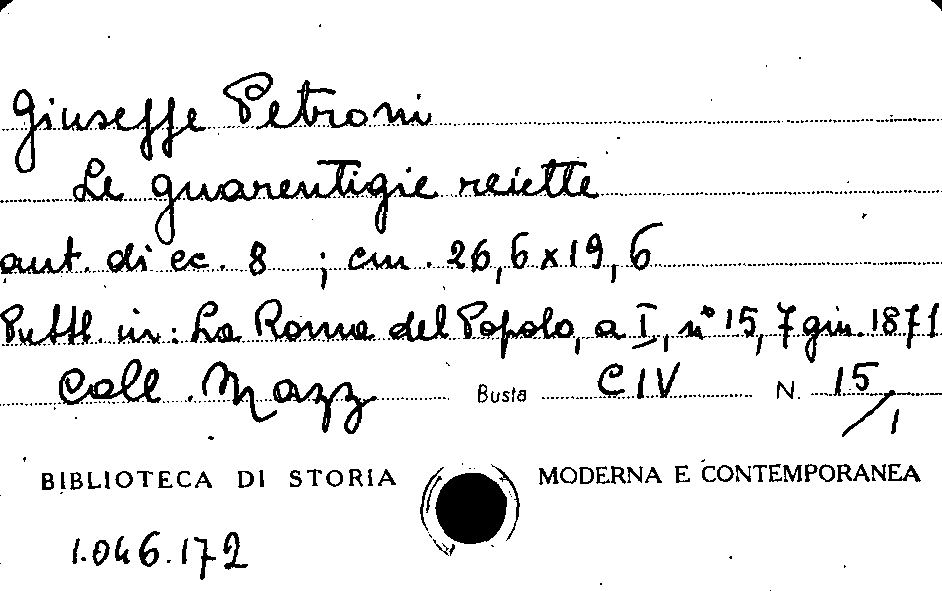 Giuseppe Petroni
Le guarentigie reiette
aut. di cc. 8 ; cm. 26,6 x 19,6
Pubbl. in: La Roma del Popolo, a I, n° 15, 7 giu. 1871
Coll. Mazz Busta CIV N. 15/1
BIBLIOTECA DI STORIA MODERNA E CONTEMPORANEA
1.046.172